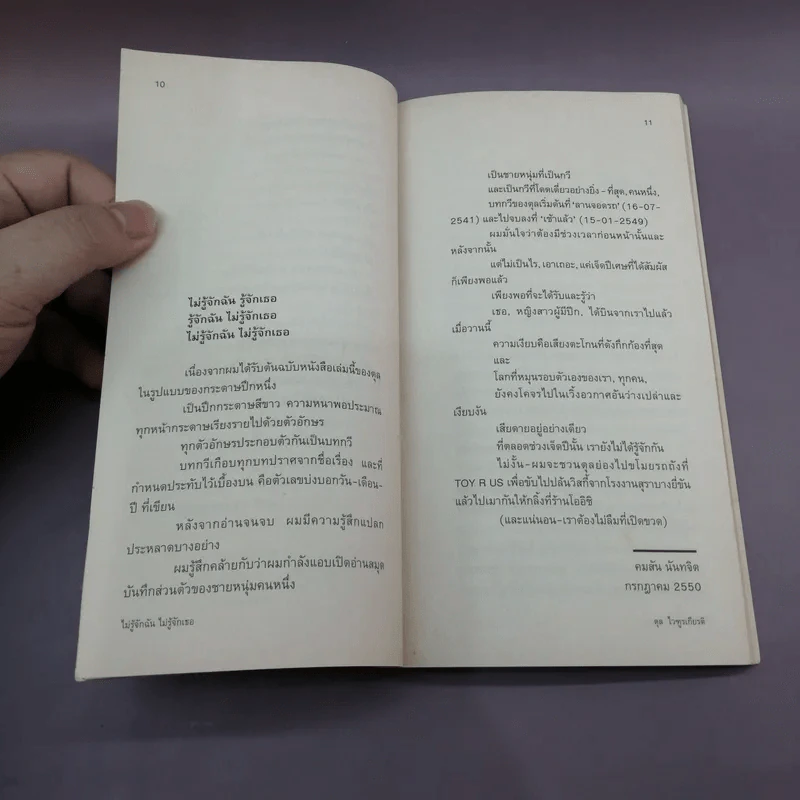 10
ไม่รู้จักฉัน รู้จักเธอ
รู้จักฉัน ไม่รู้จักเธอ
ไม่รู้จักฉัน ไม่รู้จักเธอ
เนื่องจากผมได้รับต้นฉบับหนังสือเล่มนี้ของตุล
ในรูปแบบของกระดาษปึกหนึ่ง
เป็นปึกกระดาษสีขาว ความหนาพอประมาณ
ทุกหน้ากระดาษเรียงรายไปด้วยตัวอักษร
ทุกตัวอักษรประกอบตัวกันเป็นบทกวี
บทกวีเกือบทุกบทปราศจากชื่อเรื่อง และที่
กำหนดประทับไว้เบื้องบน คือตัวเลขบ่งบอกวัน-เดือน-
ปี ที่เขียน
หลังจากอ่านจนจบ ผมมีความรู้สึกแปลก
ประหลาดบางอย่าง
ผมรู้สึกคล้ายกับว่าผมกำลังแอบเปิดอ่านสมุด
บันทึกส่วนตัวของชายหนุ่มคนหนึ่ง
ไม่รู้จักฉัน ไม่รู้จักเธอ
11
เป็นชายหนุ่มที่เป็นกวี
และเป็นกวีที่โดดเดี่ยวอย่างยิ่ง - ที่สุด, คนหนึ่ง,
บทกวีของตุลเริ่มต้นที่ 'ลานจอดรถ' (16-07-
2541) และไปจบลงที่ 'เช้าแล้ว' (15-01-2549)
ผมมั่นใจว่าต้องมีช่วงเวลาก่อนหน้านั้นและ
หลังจากนั้น
แต่ไม่เป็นไร, เอาเถอะ, แค่เจ็ดปีเศษที่ได้สัมผัส
ก็เพียงพอแล้ว
เพียงพอที่จะได้รับและรู้ว่า
เธอ, หญิงสาวผู้มีปีก, ได้บินจากเราไปแล้ว
เมื่อวานนี้
ความเงียบคือเสียงตะโกนที่ดังกึกก้องที่สุด
และ
โลกที่หมุนรอบตัวเองของเรา, ทุกคน,
ยังคงโคจรไปในเวิ้งอวกาศอันว่างเปล่าและ
เงียบงัน
เสียดายอยู่อย่างเดียว
ที่ตลอดช่วงเจ็ดปีนั้น เรายังไม่ได้รู้จักกัน
ไม่งั้น-ผมจะชวนตุลย่องไปขโมยรถถังที่
TOY R US เพื่อขับไปปล้นวิสกี้จากโรงงานสุราบางยี่ขัน
แล้วไปเมากันให้กลิ้งที่ร้านโออิชิ
(และแน่นอน-เราต้องไม่ลืมที่เปิดขวด)
คมสัน นันทจิต
กรกฎาคม 2550
ตุล ไวฑูรเกียรติ